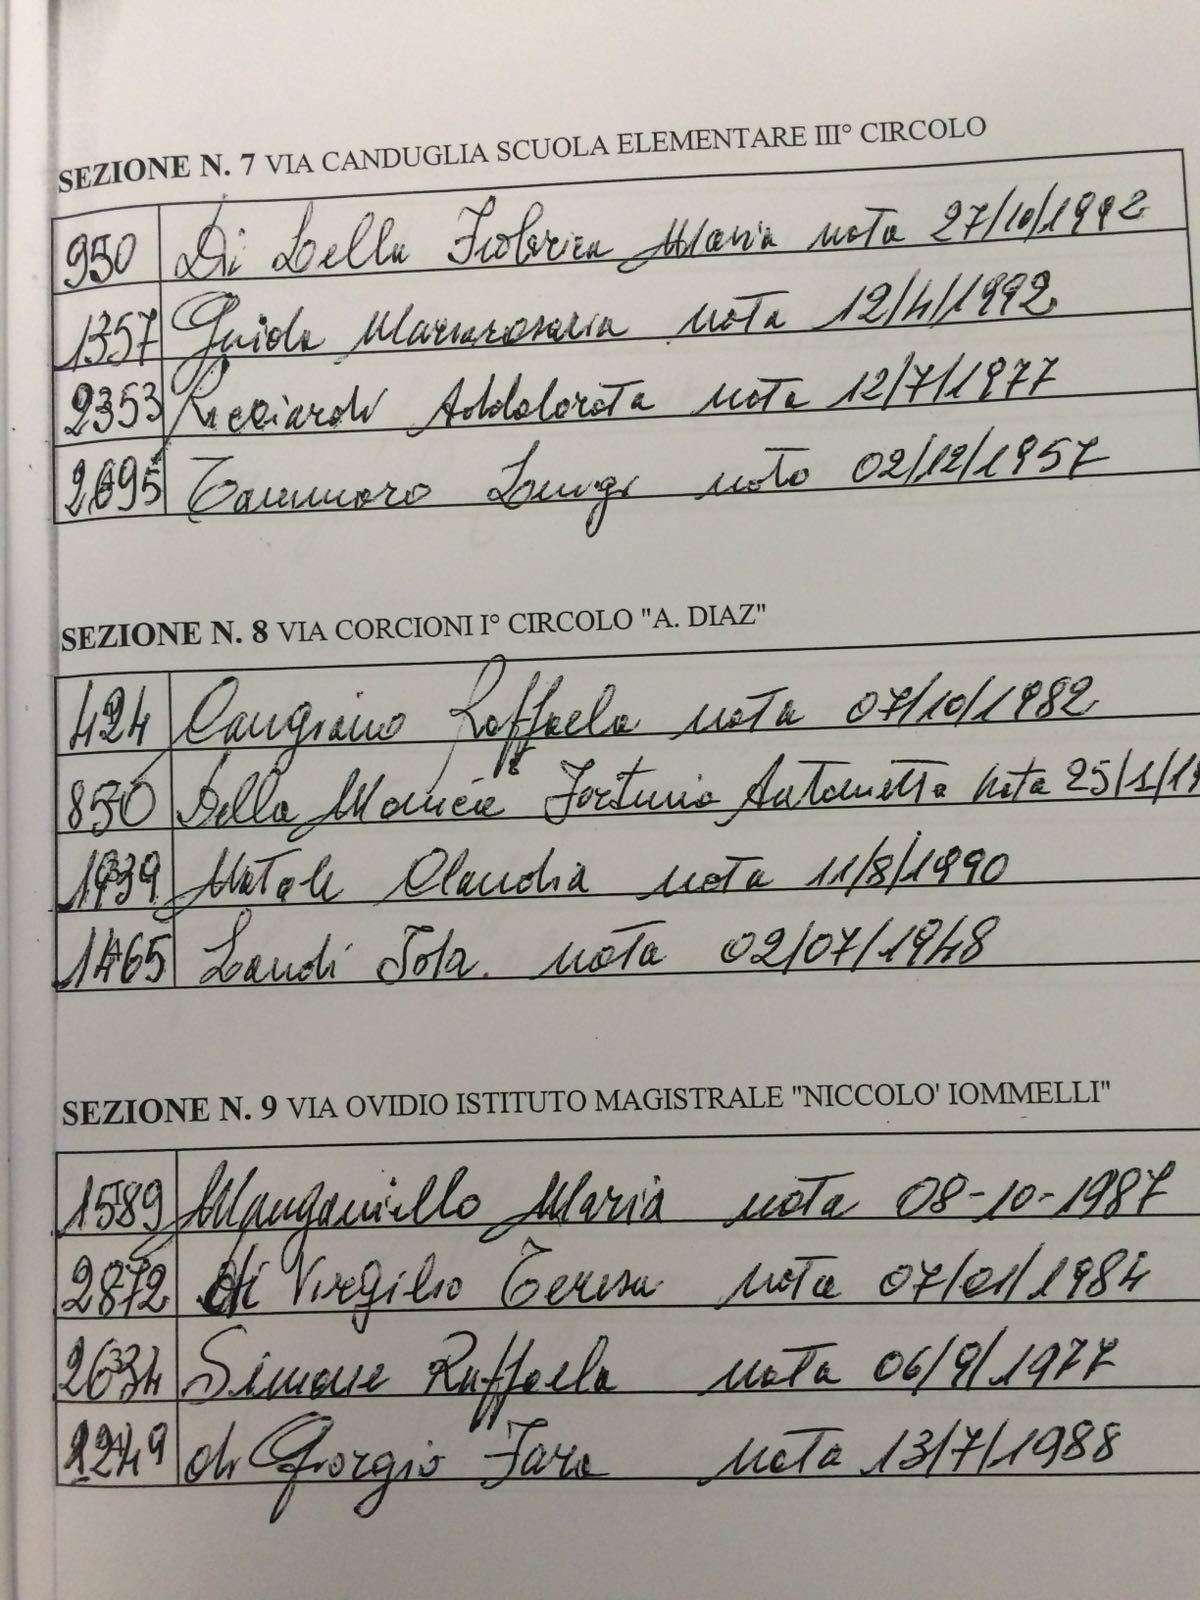 SEZIONE N. 7 VIA CANDUGLIA SCUOLA ELEMENTARE III° CIRCOLO
950 Di Lella Maria nata 27/10/1992
1357 Guida Mariarosaria nata 12/4/1992
2353 Ricciardi Addolorata nata 12/7/1977
2695 Tammaro Luigi nato 02/12/1957
SEZIONE N. 8 VIA CORCIONI I° CIRCOLO "A. DIAZ"
424 Cangiano Raffaela nata 07/10/1982
850 Della Monica Antonietta nata 25/1/19
1939 Natale Claudia nata 11/8/1990
1465 Landi nata 02/07/1948
SEZIONE N. 9 VIA OVIDIO ISTITUTO MAGISTRALE "NICCOLO' IOMMELLI"
1589 Manganiello Maria nata 08-10-1987
2872 di Virgilio Teresa nata 07/01/1984
2634 Simone Raffaela nata 06/9/1977
di Giorgio nata 13/7/1988